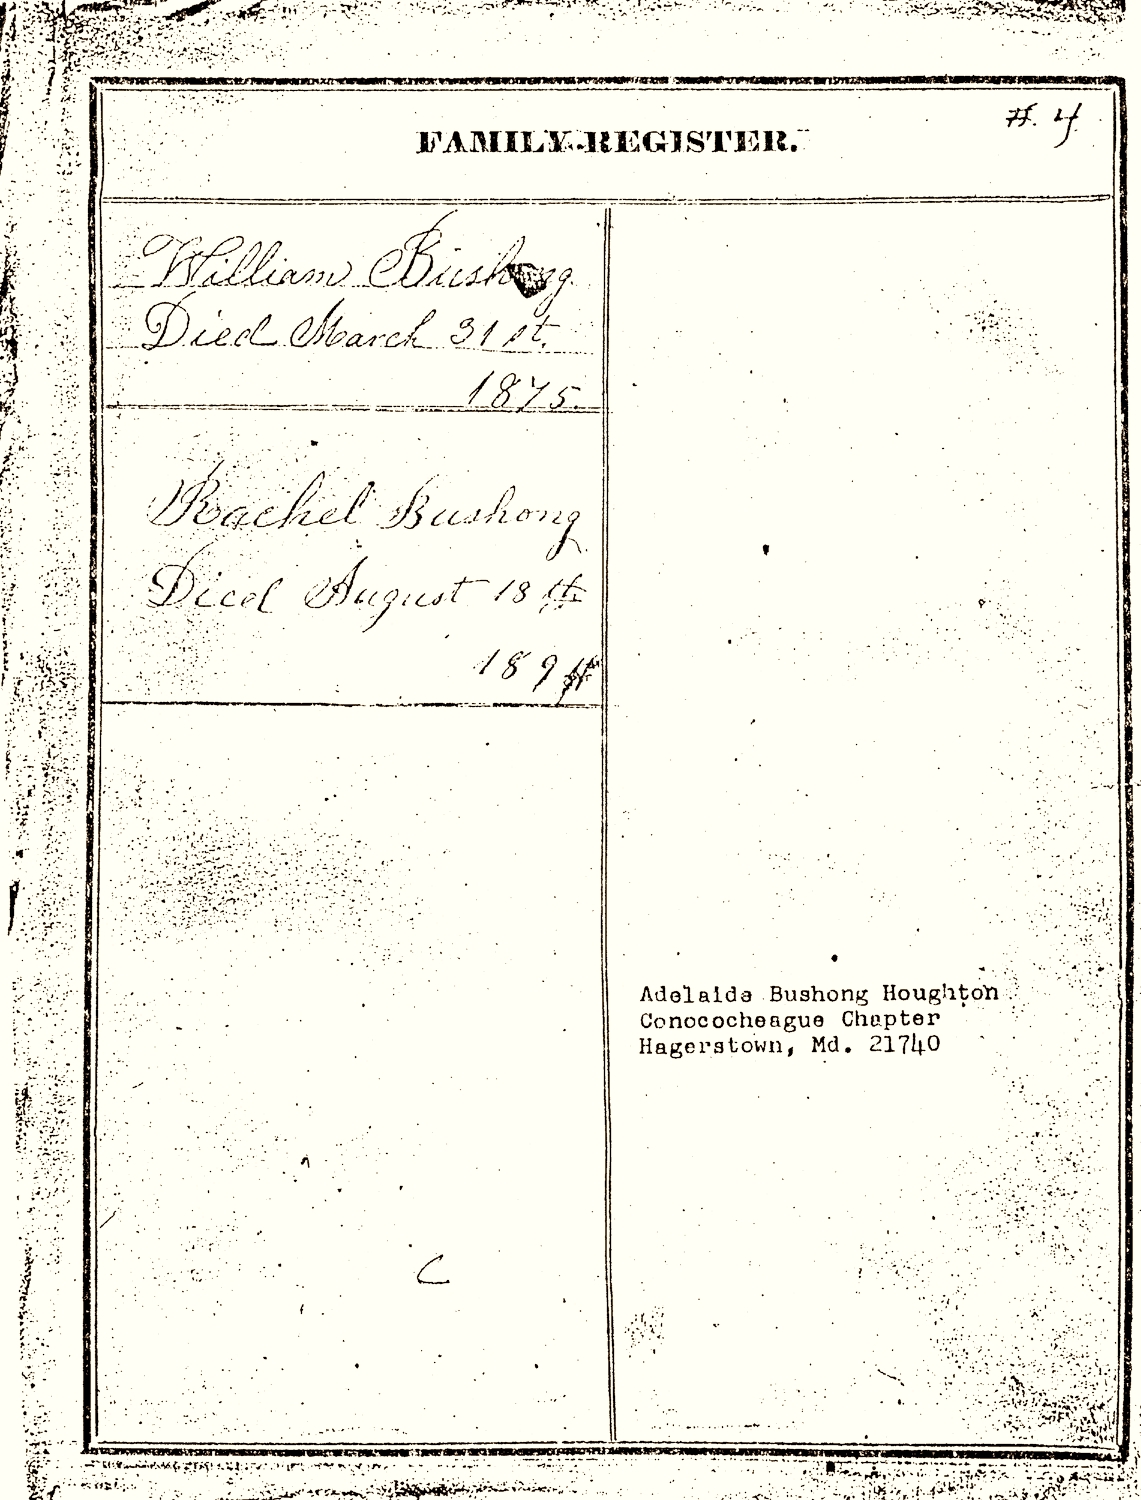 #. 4
FAMILY REGISTER.
William Bushong
Died March 31st.
1875.
Rachel Bushong
Died August 18th
189
Adelaide Bushong Houghton
Conococheague Chapter
Hagerstown, Md. 21740
C